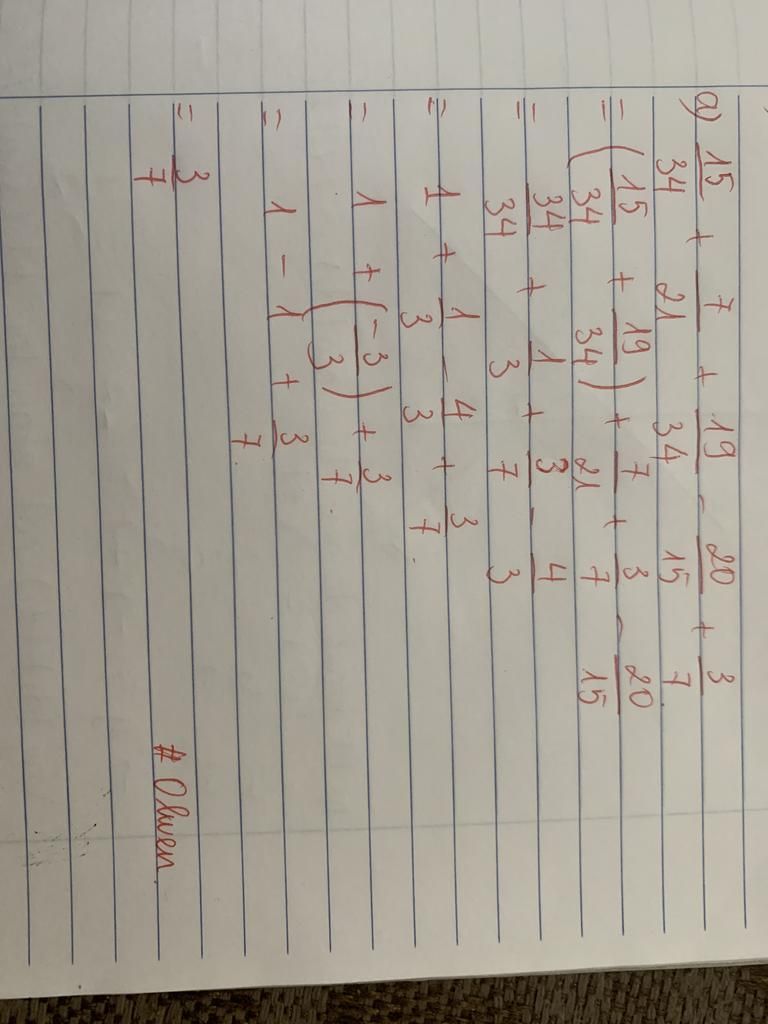 a) 15/34 + 7/21 + 19/34 - 20/15 + 3/7
= (15/34 + 19/34) + 7/21 + 3/7 - 20/15
= 34/34 + 1/3 + 3/7 - 4/3
= 1 + 1/3 - 4/3 + 3/7
= 1 + (-3/3) + 3/7
= 1 - 1 + 3/7
= 3/7
# Olwen